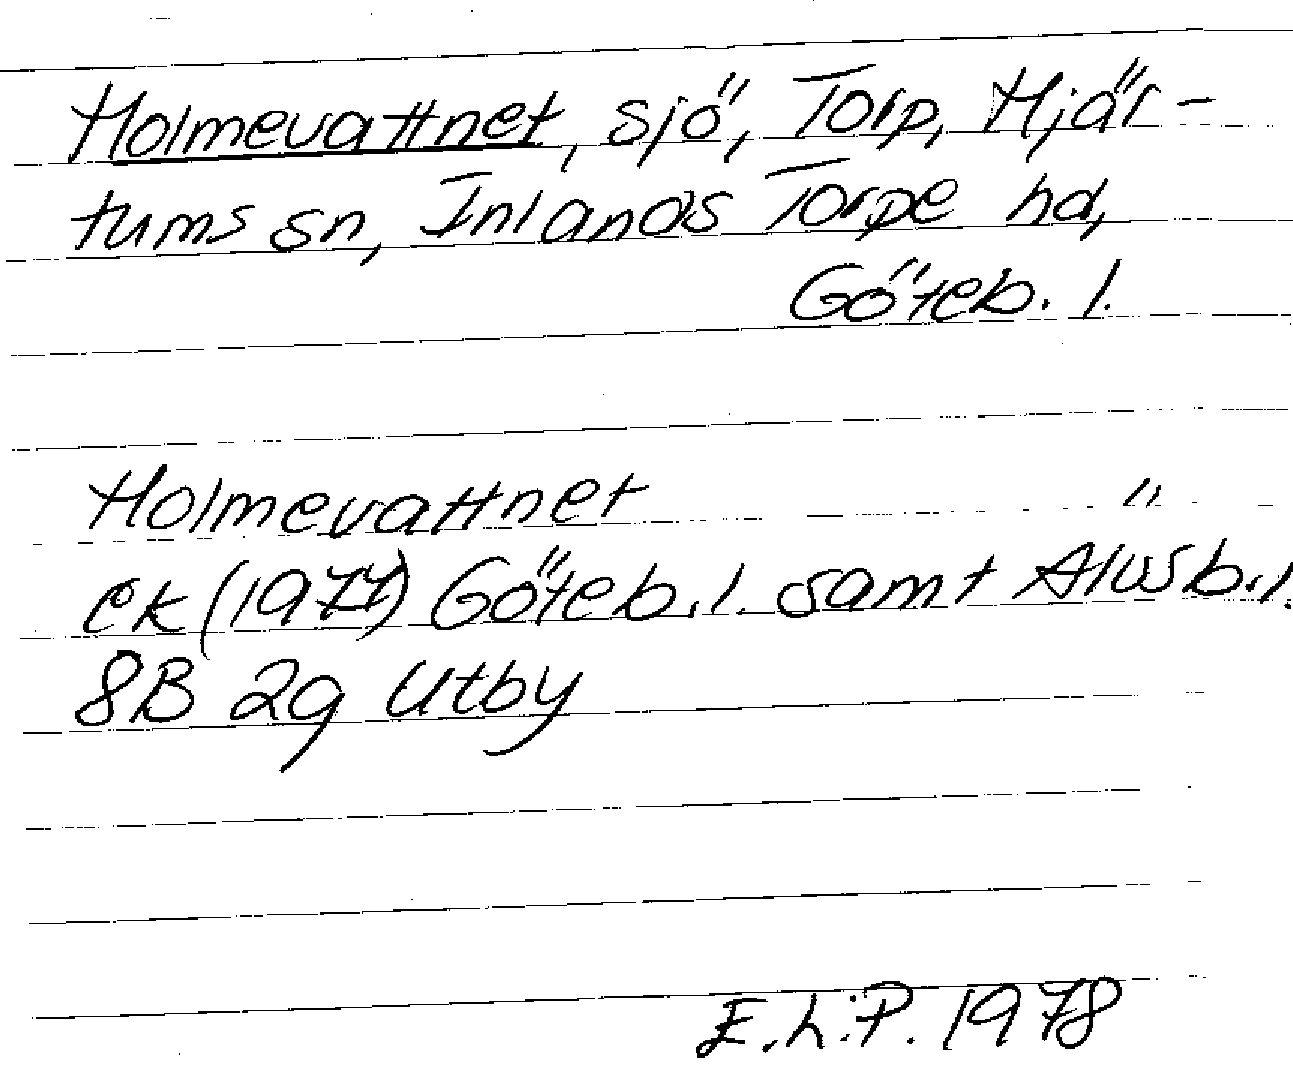 Holmevattnet, sjö, Torp, Hjär-
tums sn, Inlands Torpe hd,
Göteb. l.
Holmevattnet "
ek (1977) Göteb. l. samt Älvsb. l.
8B 2g Utby
E.L.P. 1978